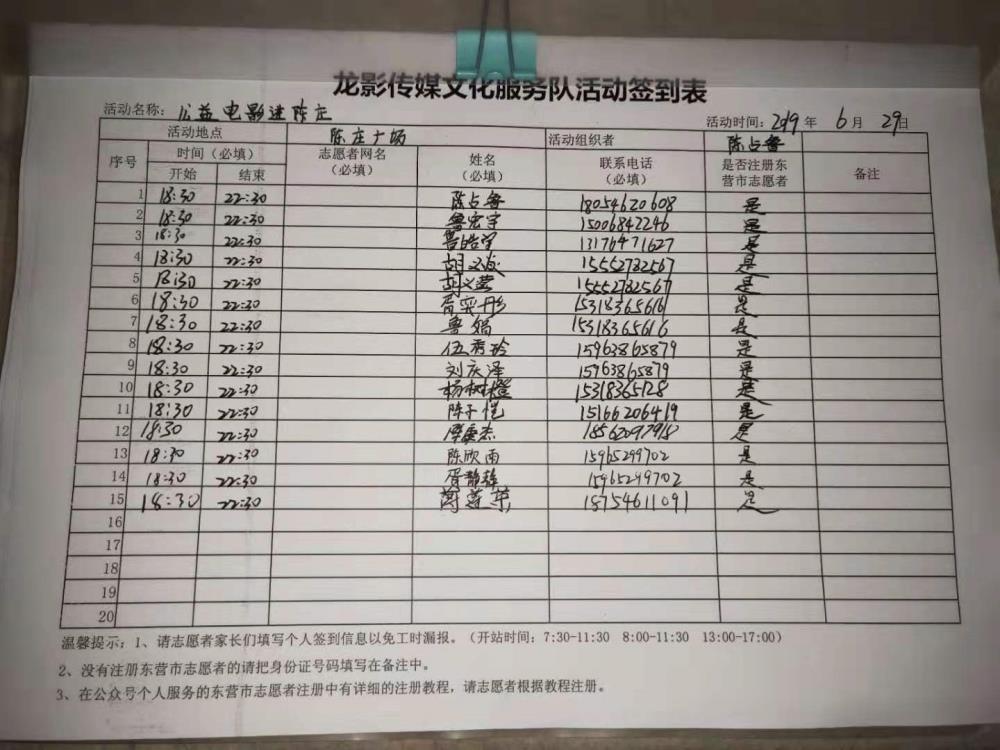 龙影传媒文化服务队活动签到表
活动名称：公益电影进陈庄 活动时间：2019年 6月 29日
活动地点 陈庄广场 活动组织者 陈占鲁
序号 时间（必填） 志愿者网名（必填） 姓名（必填） 联系电话（必填） 是否注册东营市志愿者 备注
开始 结束
1 18:30 22:30 陈占鲁 18054620608 是
2 18:30 22:30 鲁宏宇 15006842246 是
3 18:30 22:30 鲁皓宇 13176471627 是
4 18:30 22:30 胡义成 15552782567 是
5 18:30 22:30 胡义萱 15552782567 是
6 18:30 22:30 胥奕彤 15318365616 是
7 18:30 22:30 鲁娟 15318365616 是
8 18:30 22:30 伍秀玲 15963865879 是
9 18:30 22:30 刘庆泽 15963865879 是
10 18:30 22:30 杨树橙 15318365128 是
11 18:30 22:30 陈子恺 15166206419 是
12 18:30 22:30 18562097918 是
13 18:30 22:30 陈欣雨 15965299702 是
14 18:30 22:30 胥静 15965299702 是
15 18:30 22:30 18754611091 是
16
17
18
19
20
温馨提示：1、请志愿者家长们填写个人签到信息以免工时漏报。（开站时间：7:30-11:30 8:00-11:30 13:00-17:00）
2、没有注册东营市志愿者的请把身份证号码填写在备注中。
3、在公众号个人服务的东营市志愿者注册中有详细的注册教程，请志愿者根据教程注册。